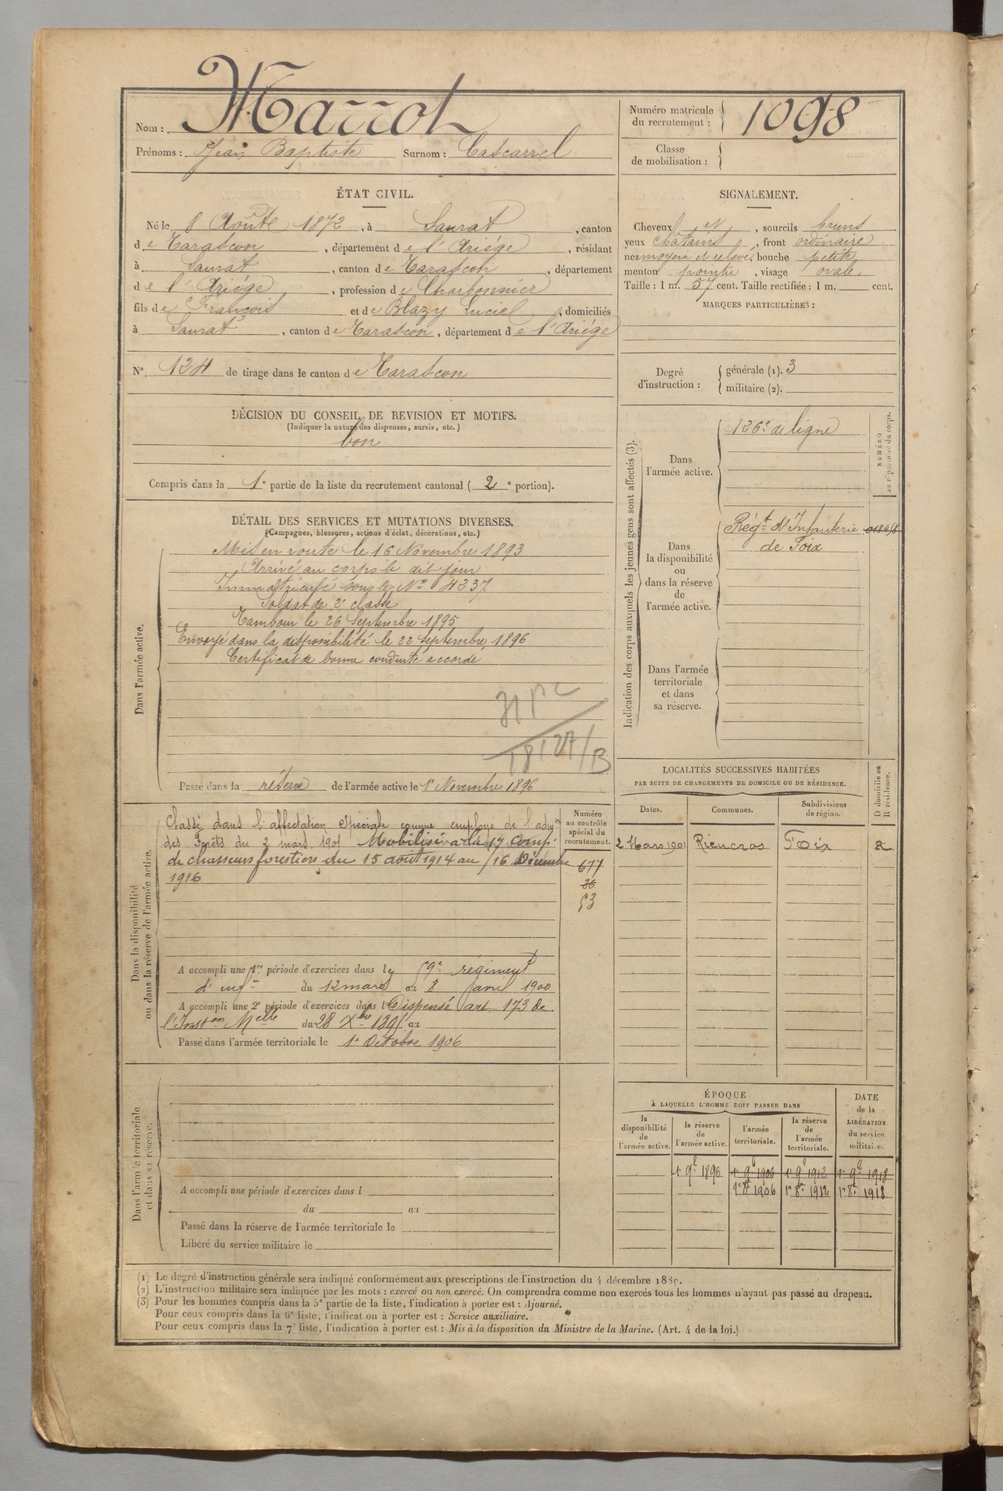 Nom : Marrot
Prénoms : Jean Baptiste Surnom : Cascarrel
Numéro matricule du recrutement : 1098
Classe de mobilisation :
ÉTAT CIVIL.
Né le 8 Août 1872, à Saurat, canton
de Tarascon, département de l'Ariége, résidant
à Saurat, canton de Tarascon, département
de l'Ariége, profession de Charbonnier
fils de François et de Blazy Luciel, domiciliés
à Saurat, canton de Tarascon, département de l'Ariége
N° 124 de tirage dans le canton de Tarascon
SIGNALEMENT.
Cheveux et, sourcils bruns
yeux chatains, front ordinaire
nez moyen et relevé, bouche petite
menton pointu, visage ovale
Taille : 1 m. 57 cent. Taille rectifiée : 1 m. cent.
MARQUES PARTICULIÈRES :
Degré d'instruction : générale (1). 3
militaire (2).
DÉCISION DU CONSEIL DE REVISION ET MOTIFS.
(Indiquer la nature des dispenses, sursis, etc.)
bon
Compris dans la 1e partie de la liste du recrutement cantonal (2e portion).
DÉTAIL DES SERVICES ET MUTATIONS DIVERSES.
(Campagnes, blessures, actions d'éclat, décorations, etc.)
Dans l'armée active.
Mis en route le 16 Novembre 1893
Arrivé au corps le dit jour
Immatriculé sous le N° 4237
Soldat de 2e classe
Tambour le 26 Septembre 1895
Envoyé dans la disponibilité le 22 septembre 1896
Certificat de bonne conduite accordé
Passé dans la réserve de l'armée active le 1er Novembre 1896
Indication des corps auxquels les jeunes gens sont affectés (3).
NUMÉRO au répertoire du corps.
Dans l'armée active.
126e de ligne
Dans la disponibilité ou dans la réserve de l'armée active.
Régt d'Infanterie
de Foix
Dans l'armée territoriale et dans sa réserve.
Dans la disponibilité ou dans la réserve de l'armée active.
Classé dans l'affectation spéciale comme employé de l'adm
des Forêts du 2 mars 1901 Mobilisé à la 17 comp.
de chasseurs forestiers du 15 août 1914 au 16 Décembre
1916
Numéro au contrôle spécial du recrutement.
677
36
53
A accompli une 1re période d'exercices dans le 59e régiment
d'infie du 12 mars au 8 avril 1900
A accompli une 2e période d'exercices dans l Dispensé art 173 de
l'Inston Melle du 28 Xbre 1895 au
Passé dans l'armée territoriale le 1er Octobre 1906
LOCALITÉS SUCCESSIVES HABITÉES
PAR SUITE DE CHANGEMENTS DE DOMICILE OU DE RÉSIDENCE.
Dates. Communes. Subdivisions de région. D domicile ou R résidence.
2 Mars 1901 Rieucros Foix R
Dans l'armée territoriale et dans sa réserve.
A accompli une période d'exercices dans l
du au
Passé dans la réserve de l'armée territoriale le
Libéré du service militaire le
ÉPOQUE
À LAQUELLE L'HOMME DOIT PASSER DANS
la disponibilité de l'armée active. la réserve de l'armée active. l'armée territoriale. la réserve de l'armée territoriale.
DATE de la LIBÉRATION du service militaire.
1er 9b 1896 1er 9b 1906 1er 9b 1912 1er 9b 1918
1er 8b 1906 1er 8b 1912 1er 8b 1918
(1) Le degré d'instruction générale sera indiqué conformément aux prescriptions de l'instruction du 4 décembre 1889.
(2) L'instruction militaire sera indiquée par les mots : exercé ou non exercé. On comprendra comme non exercés tous les hommes n'ayant pas passé au drapeau.
(3) Pour les hommes compris dans la 5e partie de la liste, l'indication à porter est : Ajourné.
Pour ceux compris dans la 6e liste, l'indication à porter est : Service auxiliaire.
Pour ceux compris dans la 7e liste, l'indication à porter est : Mis à la disposition du Ministre de la Marine. (Art. 4 de la loi.)